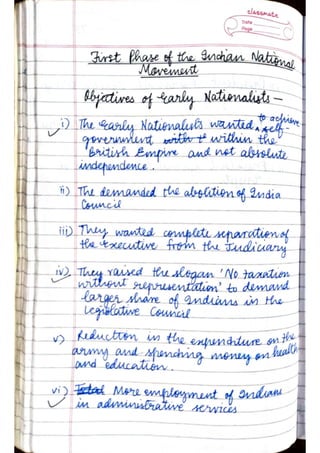 classmate
Date
Page
First Phase of the Indian National
Movement
Objectives of Early Nationalists –
i) The Early Nationalists wanted to achieve self-
government within the
British Empire and not absolute
independence.
ii) The demanded the abolition of India
Council
iii) They wanted complete separation of
the Executive from the Judiciary
iv) They raised the slogan 'No taxation
without representation' to demand
larger share of Indians in the
legislative Council
v) Reduction in the expenditure on the
army and spending money on health
and education.
vi) More employment of Indians
in administrative services